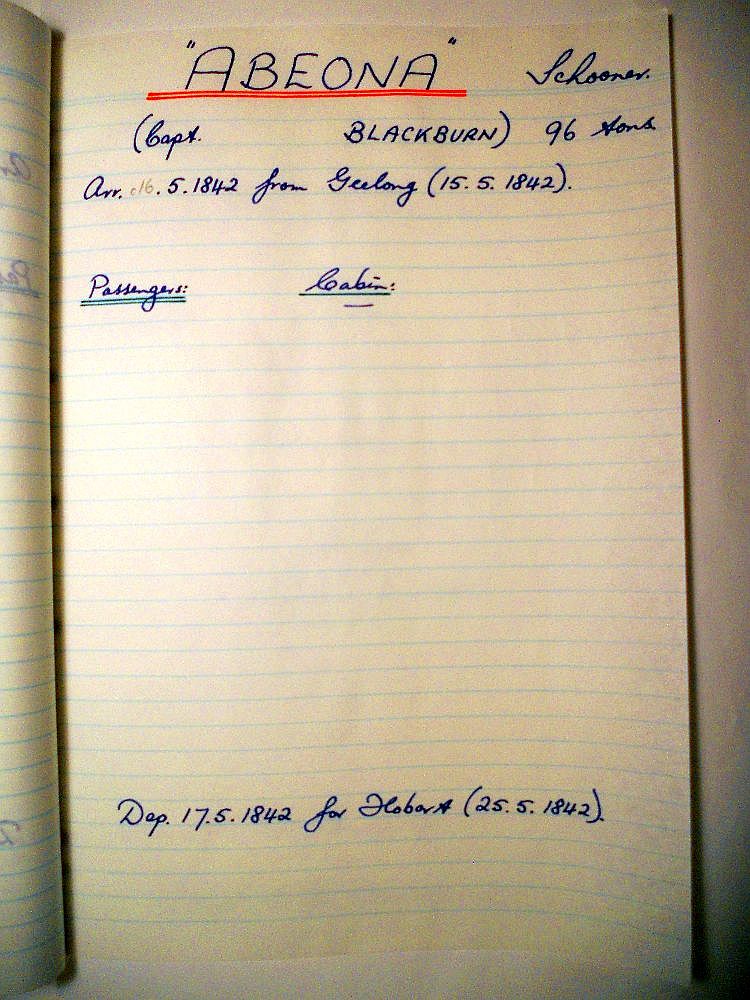 "ABEONA" Schooner.
(Capt. BLACKBURN) 96 tons
Arr. c16.5.1842 from Geelong (15.5.1842).
Passengers: Cabin:
Dep. 17.5.1842 for Hobart (25.5.1842).